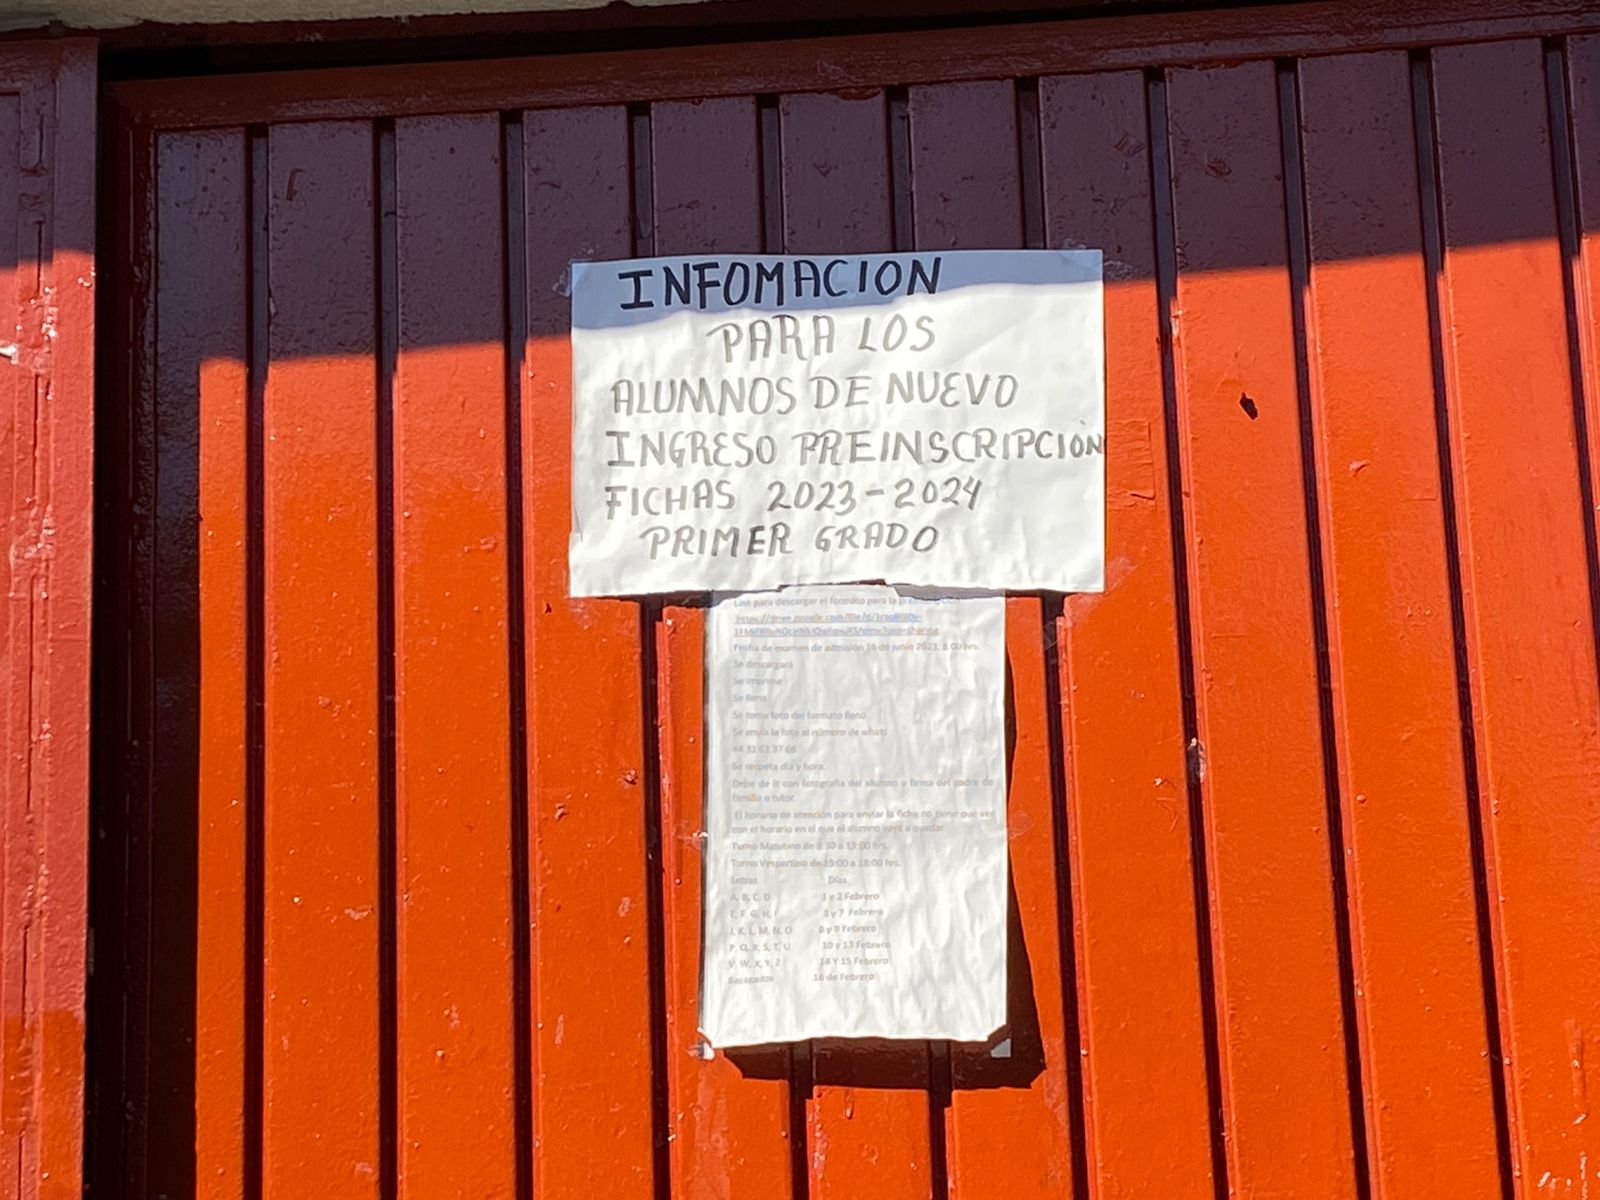 INFOMACION
PARA LOS
ALUMNOS DE NUEVO
INGRESO PREINSCRIPCIÓN
FICHAS 2023-2024
PRIMER GRADO
Link para descargar el formato para la preinscripción
Fecha de examen de admisión 16 de junio 2023, 8:00 hrs.
Se descargará
Se imprime
Se llena
Se toma foto del formato lleno
Se envía la foto al número de whats
44 31 61 37 66
Se respeta día y hora.
Debe de ir con fotografía del alumno y firma del padre de
familia o tutor.
El horario de atención para enviar la ficha no tiene que ver
con el horario en el que el alumno vaya a quedar
Turno Matutino de 8:30 a 13:00 hrs.
Turno Vespertino de 15:00 a 18:00 hrs.
Letras Días
A, B, C, D 1 y 2 Febrero
E, F, G, H, I 3 y 7 Febrero
J, K, L, M, N, O 8 y 9 Febrero
P, Q, R, S, T, U 10 y 13 Febrero
V, W, X, Y, Z 14 Y 15 Febrero
Rezagados 16 de Febrero